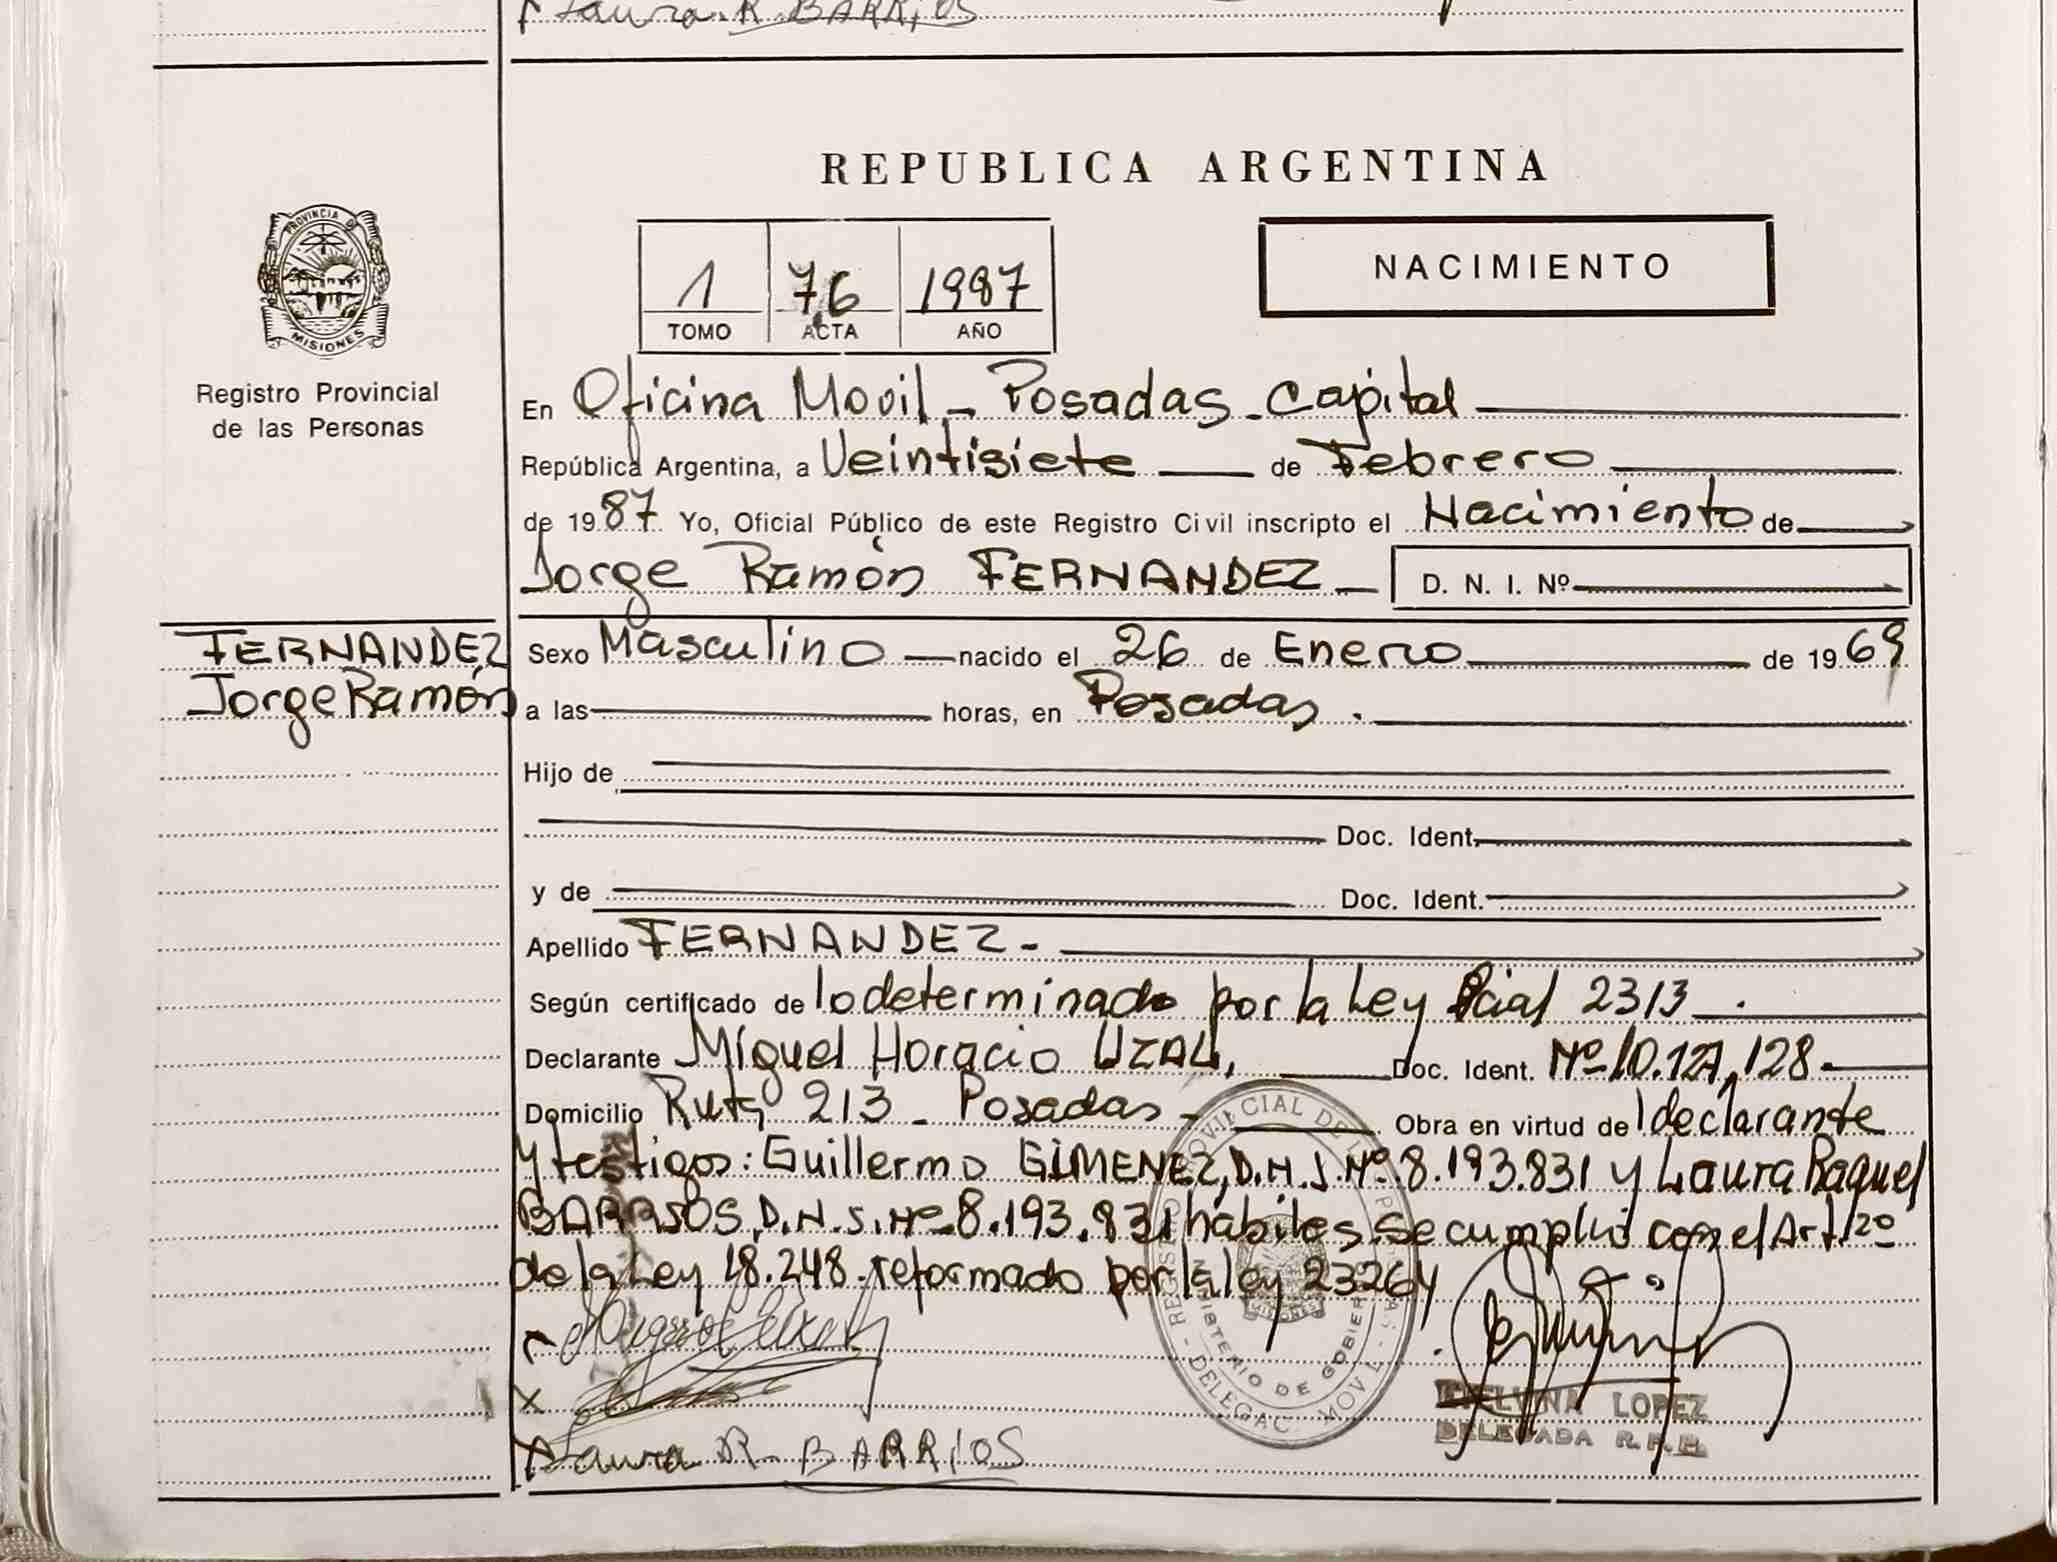 Laura R. BARRIOS
REPUBLICA ARGENTINA
PROVINCIA DE
MISIONES
Registro Provincial
de las Personas
1 76 1987
TOMO ACTA AÑO
NACIMIENTO
En Oficina Movil - Posadas - Capital
República Argentina, a Veintisiete de Febrero
de 1987 Yo, Oficial Público de este Registro Civil inscripto el Nacimiento de
Jorge Ramón FERNANDEZ D. N. I. Nº
FERNANDEZ
Jorge Ramón
Sexo Masculino nacido el 26 de Enero de 1969
a las horas, en Posadas.
Hijo de
Doc. Ident.
y de Doc. Ident.
Apellido FERNANDEZ -
Según certificado de lo determinado por la Ley Pcial 2313 .
Declarante Miguel Horacio UZAL, Doc. Ident. Nº 10.127.128
Domicilio Ruta 213 - Posadas - Obra en virtud del declarante
y testigos: Guillermo GIMENEZ, D.N.I. Nº 8.193.831 y Laura Raquel
BARRIOS, D.N.I. Nº 8.193.831 hábiles. Se cumplió con el Art. 12º
de la Ley 18.248 - reformado por la ley 23264
X
Laura R. BARRIOS
REGISTRO PROVINCIAL DE LAS PERSONAS
MINISTERIO DE GOBIERNO
MISIONES
DELEGAC. MOVIL
LOPEZ
DELEGADA R.P.P.